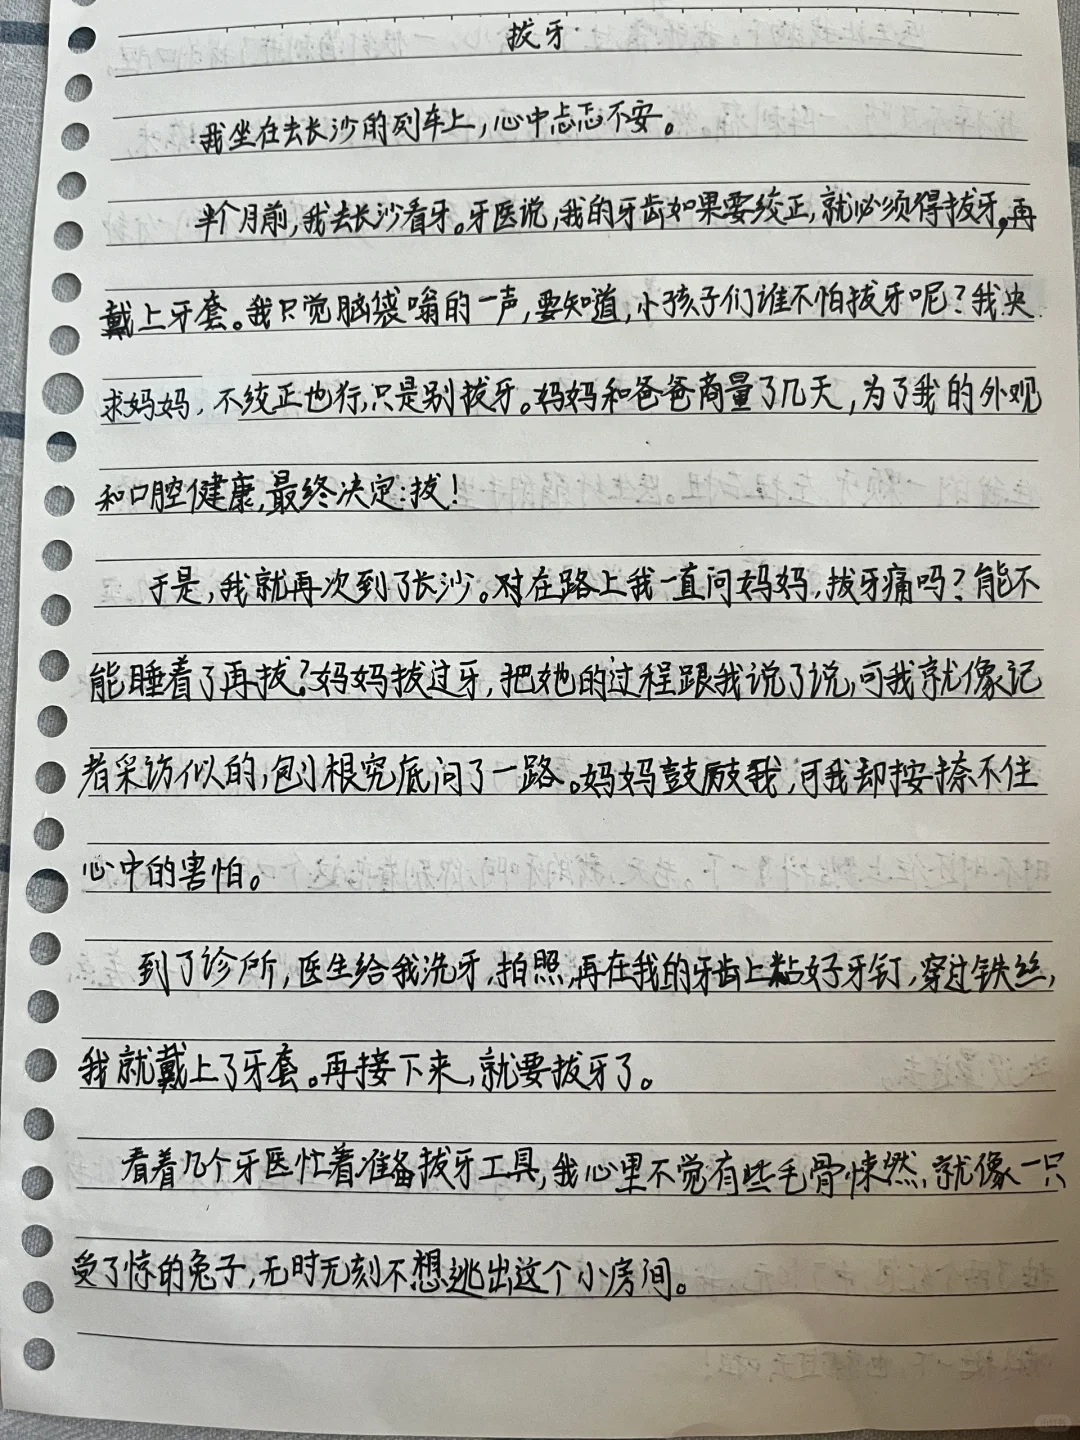 拔牙
我坐在去长沙的列车上，心中忐忑不安。
半个月前，我去长沙看牙。牙医说，我的牙齿如果要绞正，就必须得拔牙，再
戴上牙套。我只觉脑袋嗡的一声，要知道，小孩子们谁不怕拔牙呢？我央
求妈妈，不绞正也行，只是别拔牙。妈妈和爸爸商量了几天，为了我的外观
和口腔健康，最终决定：拔！
于是，我就再次到了长沙。对在路上我一直问妈妈，拔牙痛吗？能不
能睡着了再拔？妈妈拔过牙，把她的过程跟我说了说，可我就像记
者采访似的，刨根究底问了一路。妈妈鼓励我，可我却按捺不住
心中的害怕。
到了诊所，医生给我洗牙，拍照，再在我的牙齿上粘好牙钉，穿过铁丝，
我就戴上了牙套。再接下来，就要拔牙了。
看着几个牙医忙着准备拔牙工具，我心里不觉有些毛骨悚然，就像一只
受了惊的兔子，无时无刻不想逃出这个小房间。